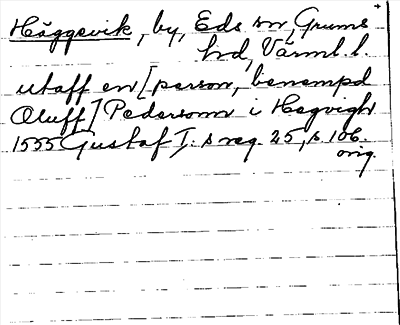 Häggsvik, by, Eds sn, Grums
hd, Värml. l.
utaff en [person, benempd
Oluff] Pedersonn i Hegvigh
1555 Gustaf I:s reg. 25, s. 106.
orig.